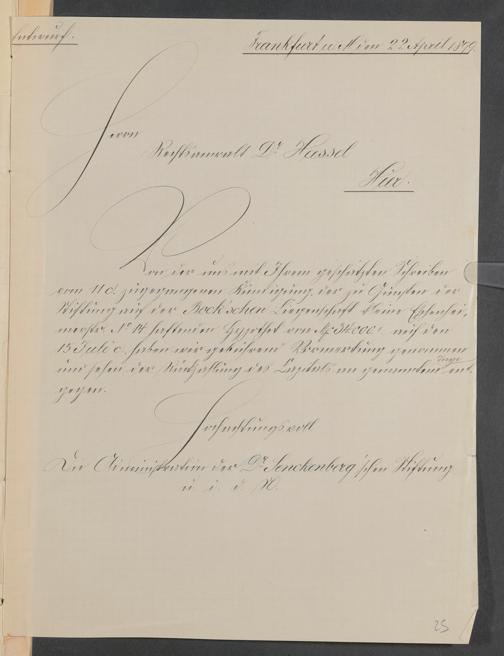 Entwurf.
Frankfurt a/M den 22 April 1879.
Herrn
Rechtsanwalt Dr Hassel
Hier.
Von der uns mit Ihrem geschätzten Schreiben
vom 11 d. zugegangenen Kündigung der zu Gunsten der
Stiftung auf der Bock'schen Liegenschaft kleine Eschenhei-
merstr. No 14 haftenden Hypothek von M 34000. auf den
15 Juli c. haben wir gebührend Vormerkung genommen
und sehen der Rückzahlung des Capitals an genanntem Tage ent
gegen.
Hochachtungsvoll
Die Administration der Dr Senckenberg'schen Stiftung
u. i. d. N.
25